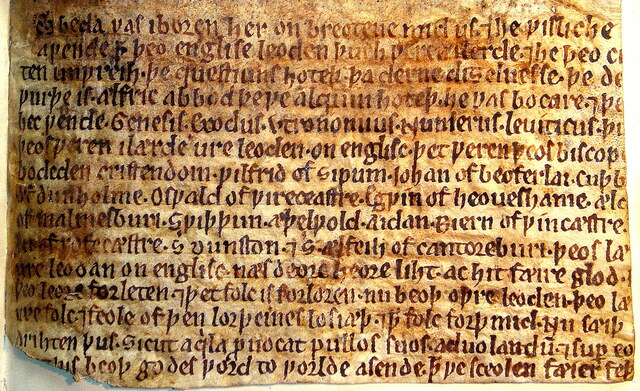 Beda ƿas iboren her on breotene mid us. ⁊he ƿisliche
aƿende. ꝥ þeo englise leoden þurh ƿeren ilerde. ⁊he þeo c
ten unƿreih. þe questiuns hoteþ. þa derne diȝelnesse. þe de
ƿurþe is. ælfric abbod þe ƿe alquin hoteþ. he ƿas bocare. ⁊þe
bec ƿende. Genesis. Exodus. Vtronomius. Numerus. Leuiticus. þu
þeos ƿeren ilærde ure leoden. on englisc. þet ƿeren þeos biscop
bodeden cristendom. ƿilfrid of ripum. iohan of beoferlai. cuþb
of dunholme. Osƿald of ƿireceastre. Egƿin of heoueshame. æld
of malmesburi. Sƿiþþun. aþelƿold. aidan. Biern of ƿincæstre.
of rofecæstre. S dunston. ⁊ S. ælfeih of cantoreburi. þeos læ
ure leodan on englisc. næs deorc heore liht. ac hit fæire glod.
þeo leore forleten. ⁊þet folc is forloren. nu beoþ oþre leoden. þeo læ
ure folc. ⁊feole of þen lorþeines losiæþ. ⁊ꝥ folc forþ mid. Nu sæiþ
drihten þus. Sicut aq̄la ꝓuocat pullos suos. ad uolandū. ⁊ sup eo
þis beoþ godes ƿord to ƿorlde asende. ꝥ ƿe sceolen fæier feþ